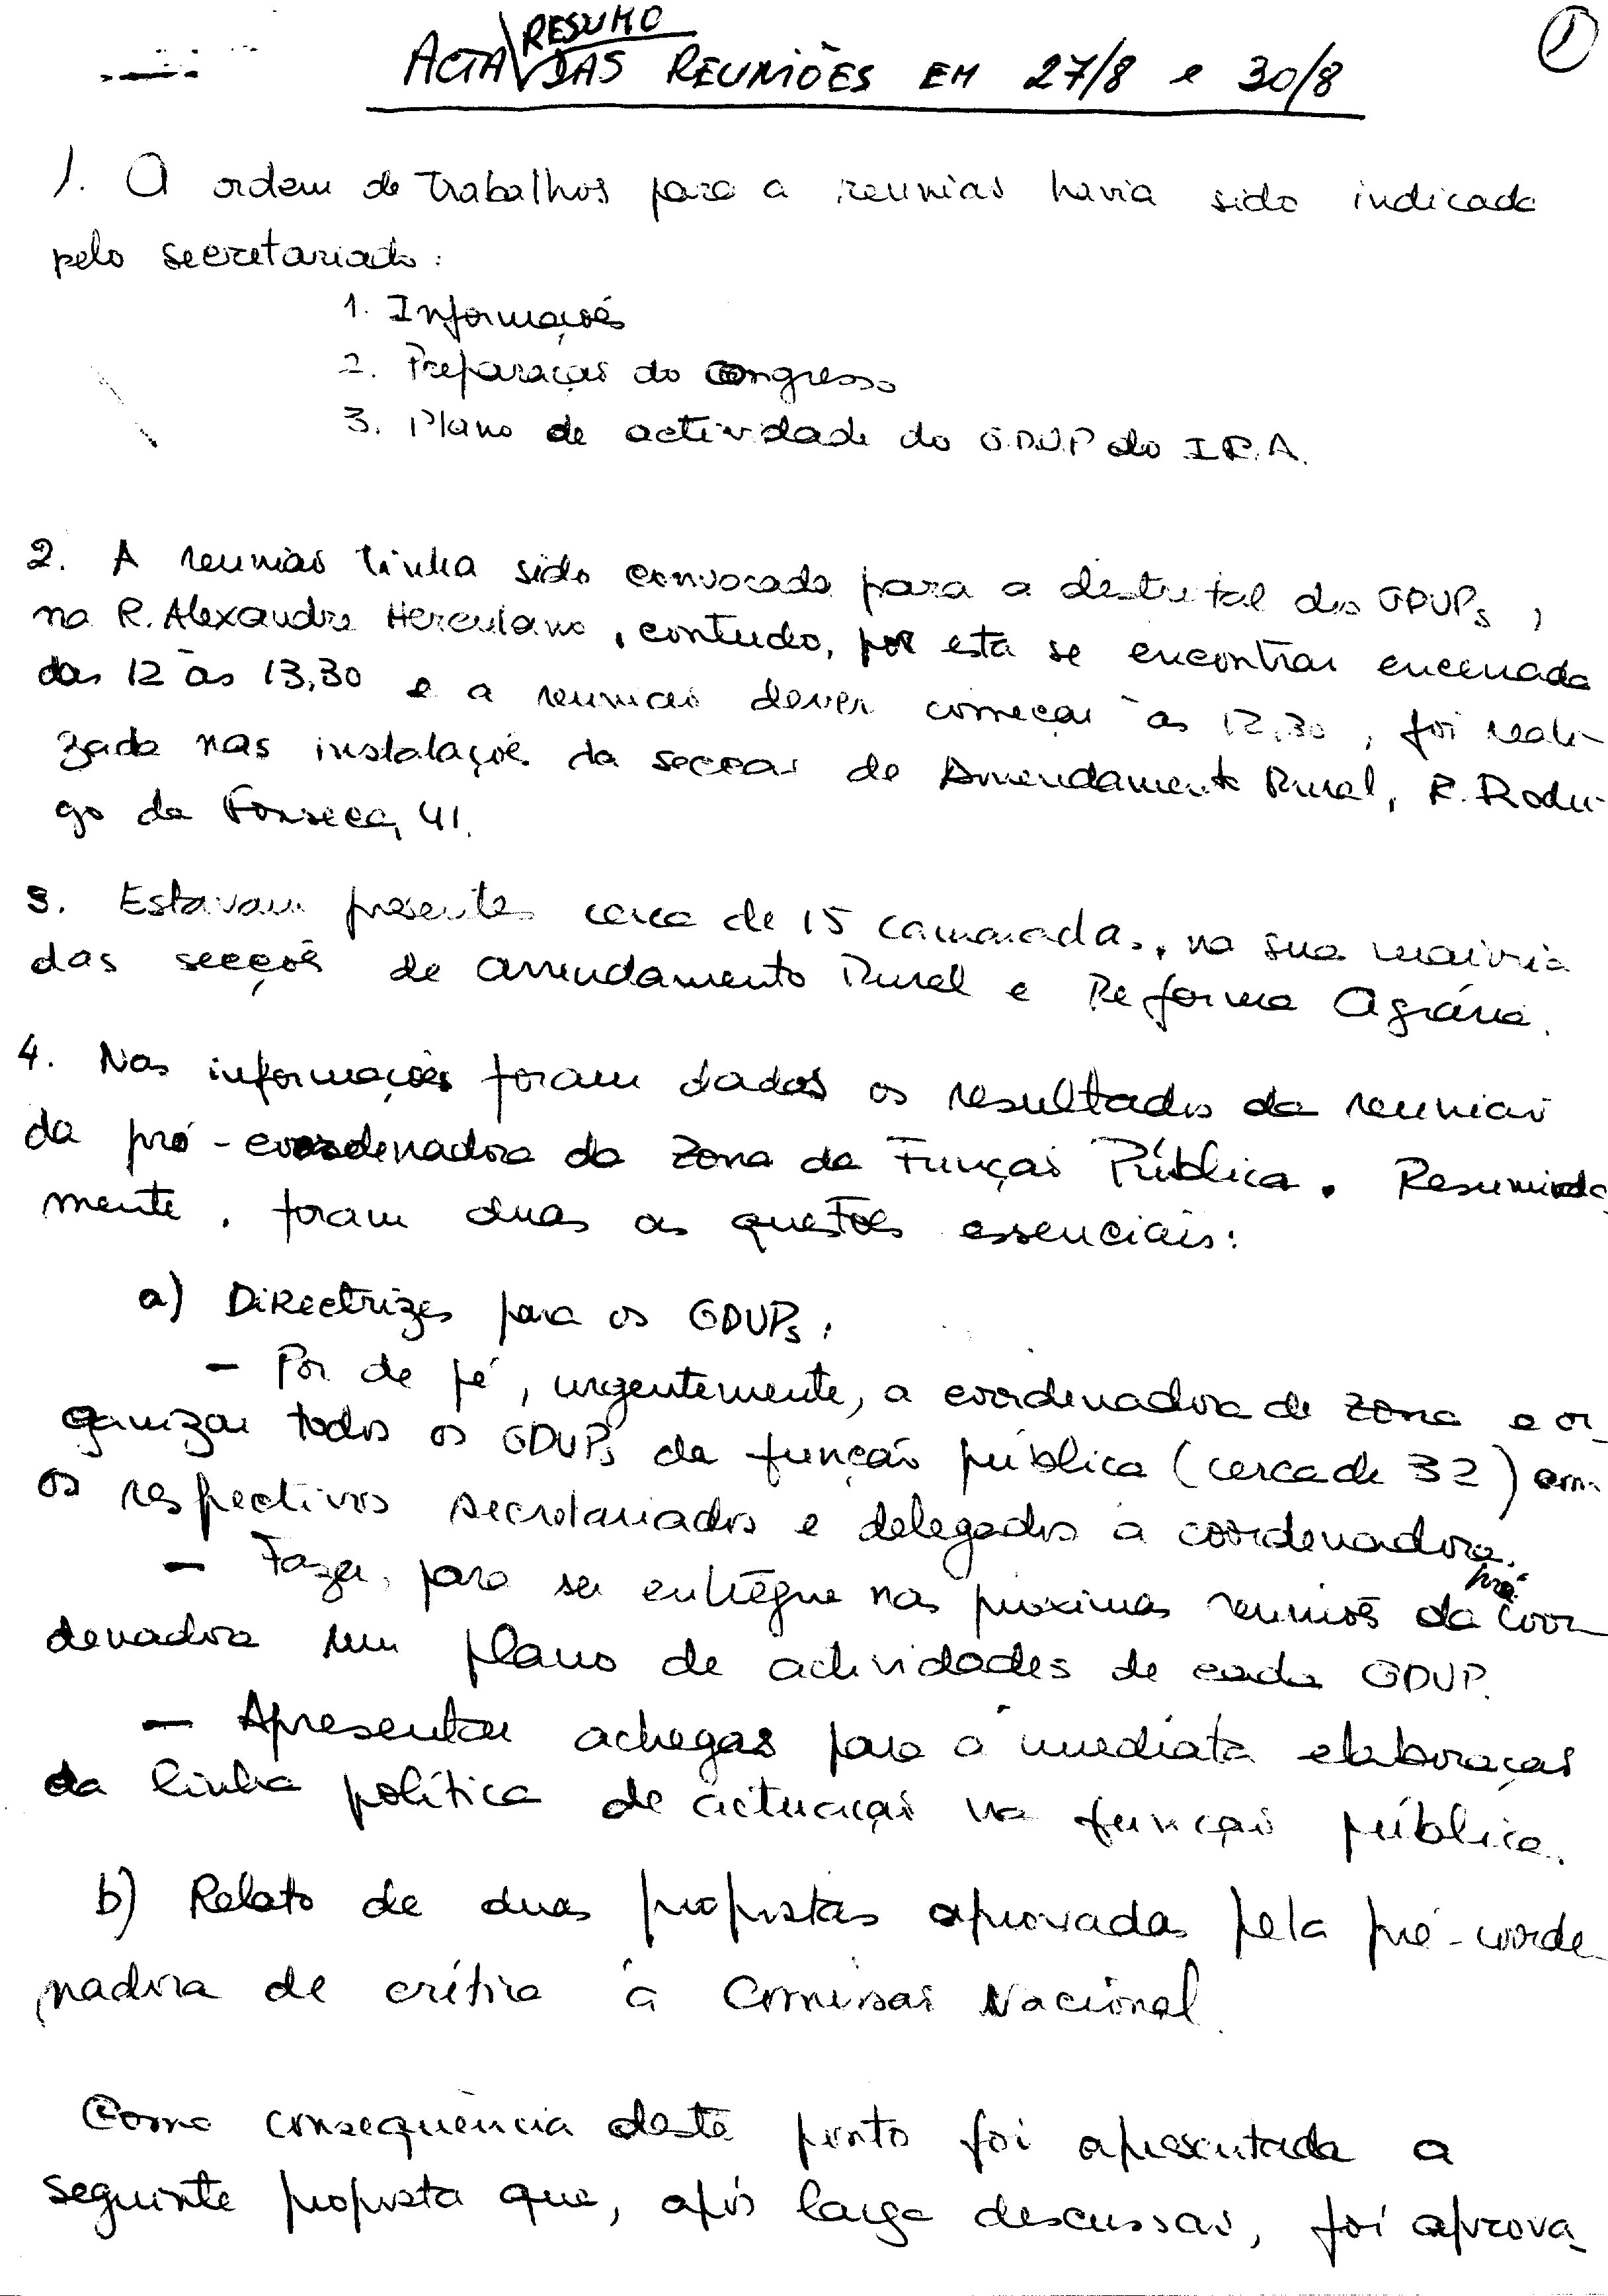 1
RESUMO
ACTA DAS REUNIÕES EM 27/8 e 30/8
1. A ordem de trabalhos para a reunião havia sido indicada
pelo secretariado:
1. Informações
2. Preparação do congresso
3. Plano de actividade do GDUP do I.R.A.
2. A reunião tinha sido convocada para a distrital dos GDUPs,
na R. Alexandre Herculano, contudo, por esta se encontrar encerrada
das 12 às 13,30 e a reunião dever começar às 12,30, foi reali-
zada nas instalações da secção de Arrendamento Rural, R. Rodri-
go da Fonseca, 41.
3. Estavam presentes cerca de 15 camaradas, na sua maioria
das secções de arrendamento Rural e Reforma Agrária.
4. Nas informações foram dados os resultados da reunião
da pró-coordenadora da zona da Função Pública. Resumida
mente, foram duas as questões essenciais:
a) Directrizes para os GDUPs:
- Pôr de pé, urgentemente, a coordenadora de zona e or-
ganizar todos os GDUPs da função pública (cerca de 32) com
os respectivos secretariados e delegados à coordenadora.
- Fazer, para ser entregue nas próximas reuniões da pró-coor
denadora um plano de actividades de cada GDUP.
- Apresentar achegas para a imediata elaboração
da linha política de actuação na função pública.
b) Relato de duas propostas aprovadas pela pró-coorde-
nadora de crítica à Comissão Nacional.
Como consequência deste ponto foi apresentada a
seguinte proposta que, após larga descussão, foi aprova-